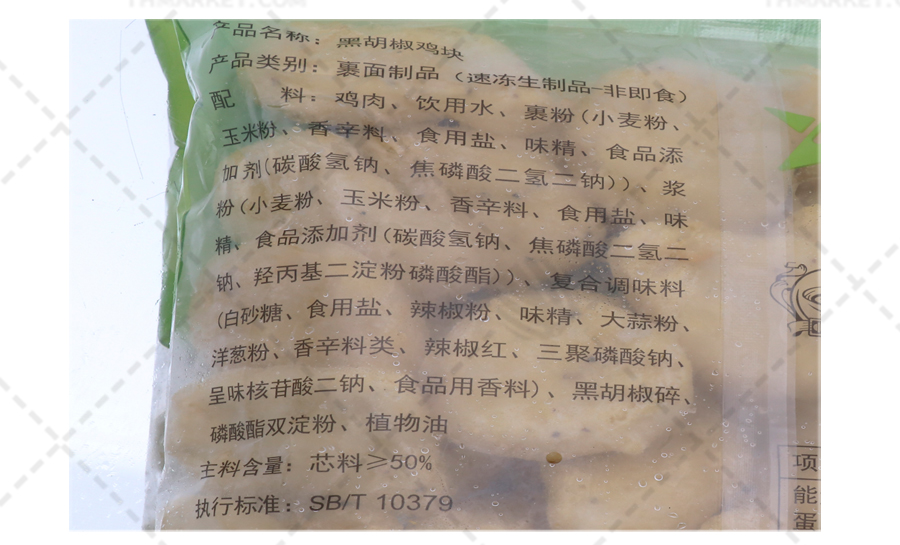 产品名称：黑胡椒鸡块
产品类别：裹面制品（速冻生制品-非即食）
配 料：鸡肉、饮用水、裹粉（小麦粉、
玉米粉、香辛料、食用盐、味精、食品添
加剂（碳酸氢钠、焦磷酸二氢二钠））、浆
粉（小麦粉、玉米粉、香辛料、食用盐、味
精、食品添加剂（碳酸氢钠、焦磷酸二氢二
钠、羟丙基二淀粉磷酸酯））、复合调味料
（白砂糖、食用盐、辣椒粉、味精、大蒜粉、
洋葱粉、香辛料类、辣椒红、三聚磷酸钠、
呈味核苷酸二钠、食品用香料）、黑胡椒碎、
磷酸酯双淀粉、植物油
主料含量：芯料≥50%
执行标准：SB/T 10379
项
能
蛋